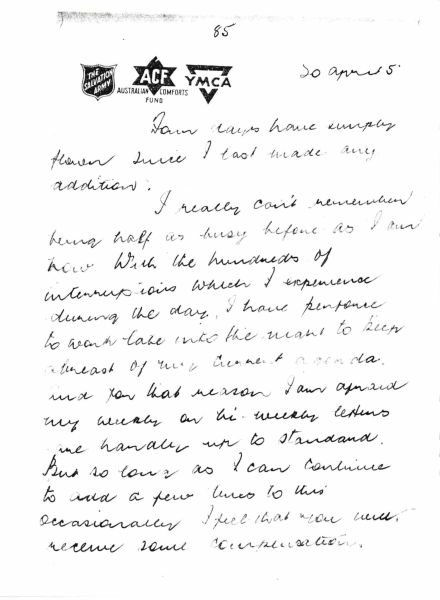 85
THE SALVATION ARMY
ACF
AUSTRALIAN COMFORTS FUND
YMCA
20 april 5
Four days have simply
flown since I last made any
addition.
I really can't remember
being half as busy before as I am
now. With the hundreds of
interruptions which I experience
during the day, I have perforce
to work late into the night to keep
abreast of my current agenda.
and for that reason I am afraid
my weekly or bi-weekly letters
are hardly up to standard.
But so long as I can continue
to add a few lines to this
occasionally I feel that you will
receive some compensation.